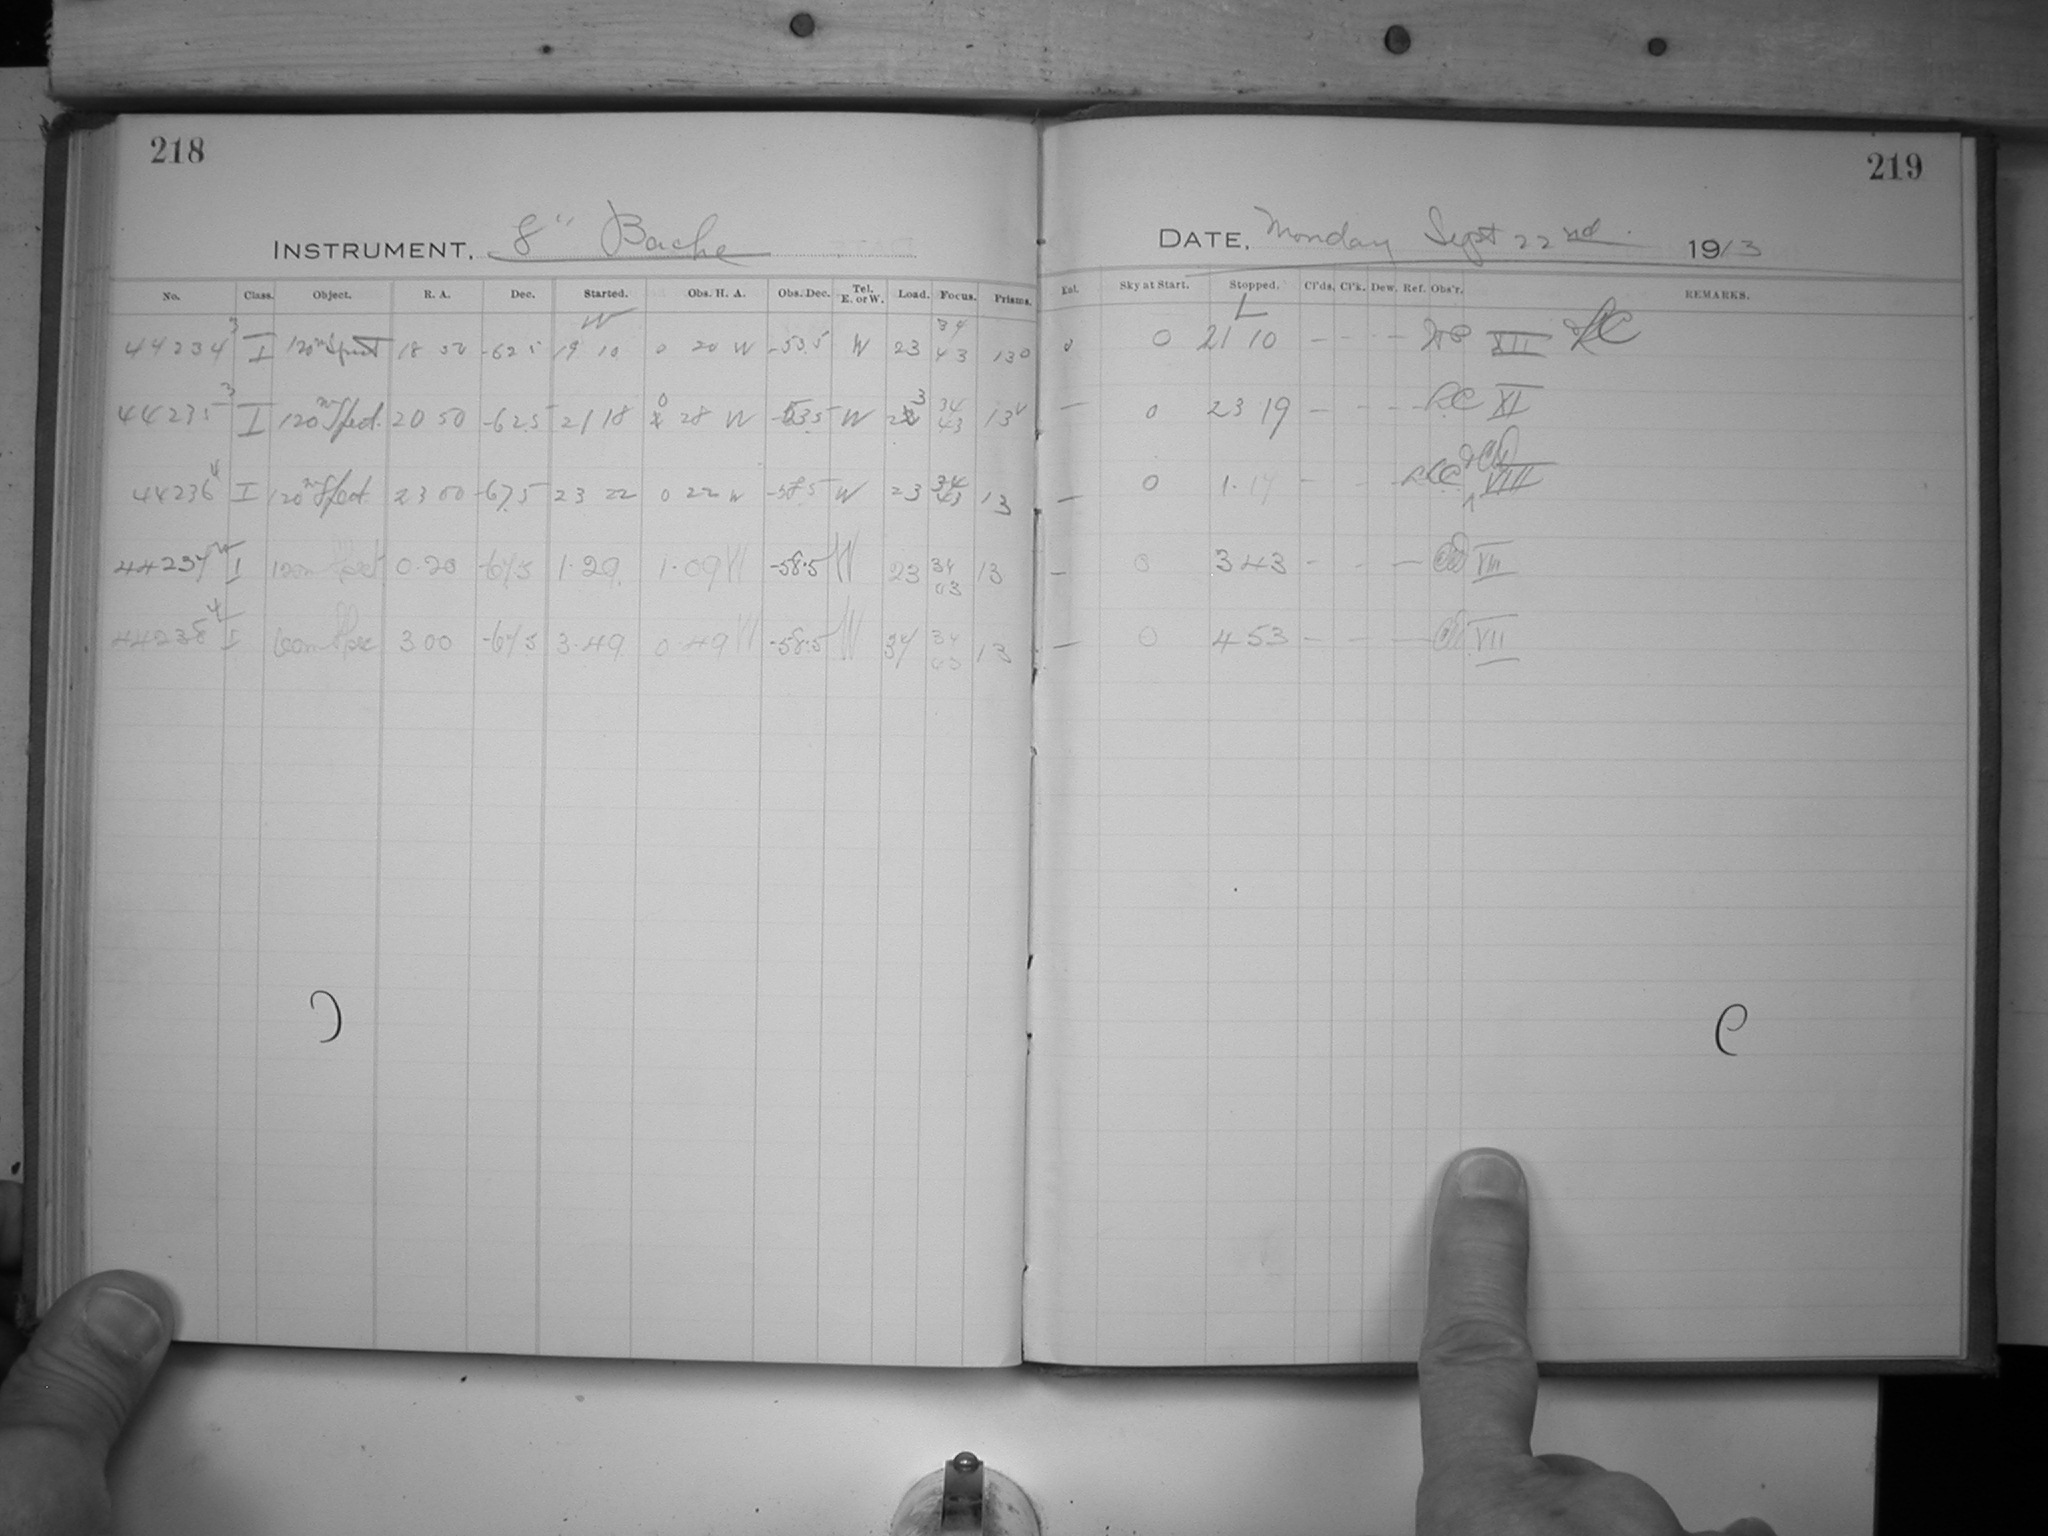 218
INSTRUMENT, 8" Bache
No. Class. Object. R. A. Dec. Started. Obs. H. A. Obs. Dec. Tel. E. or W. Load. Focus. Prisms.
44234 3 I 120m Spect 18 50 -62.5 19 10 0 20 W -53.5 W 23 34 43 13
44235 3 I 120m Spect. 20 50 -62.5 21 18 0 28 W -53.5 W 23 34 43 13
44236 4 I 120m Spect 23 00 -67.5 23 22 0 22 W -58.5 W 23 34 43 13
44237 I 120m Spect 0.20 -67.5 1.29 1.09 W -58.5 W 23 34 43 13
44238 4 I 60m Spec 3 00 -67.5 3.49 0.49 W -58.5 W 34 43 13
219
DATE, Monday Sept 22nd 1913
Ext. Sky at Start. Stopped. Cl'ds. Cl'k. Dew. Ref. Obs'r. REMARKS.
0 0 21 10 - - - - XII & LC
- 0 23 19 - - - LC XI
- 0 1.14 - - - LC & VIII
- 0 3 43 - - - VIII
- 0 4 53 - - - VII